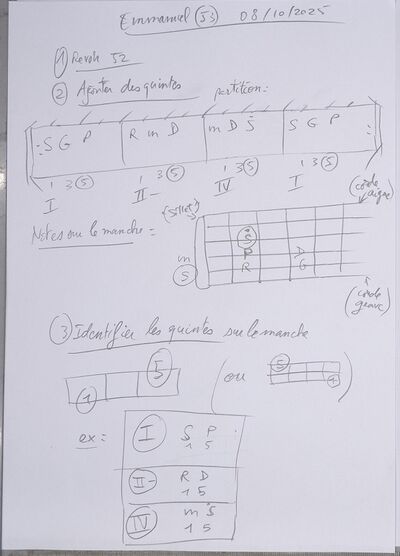 Emmanuel (53) 08/10/2025
① Revoir 52
② Ajouter des quintes
partition:
: S G P R m D m D Ṡ S G P :
1 3 ⑤ 1 3 ⑤ 1 3 ⑤ 1 3 ⑤
I II- IV I
(Sillet) (corde aigue)
Notes sur le manche =
Ṡ
m P D
Ⓢ R G
(corde grave)
③ Identifier les quintes sur le manche
⑤ ⑤
① (ou ①)
ex = I S P
1 5
II- R D
1 5
IV m Ṡ
1 5